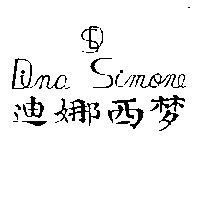 Dina Simone
迪娜西梦